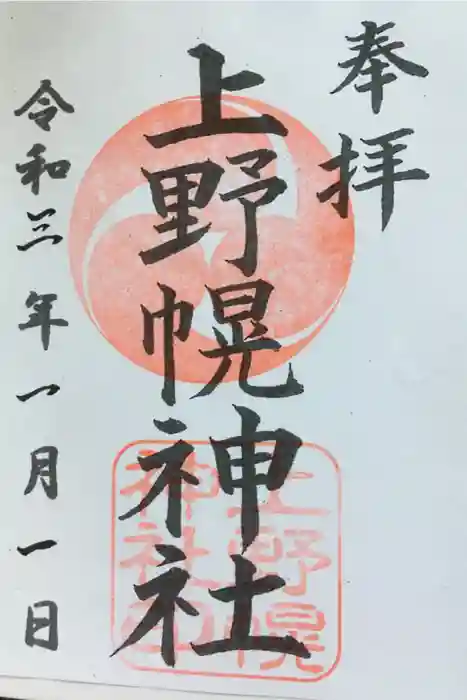 奉拝
上野幌神社
令和三年一月一日
上野幌
神社印